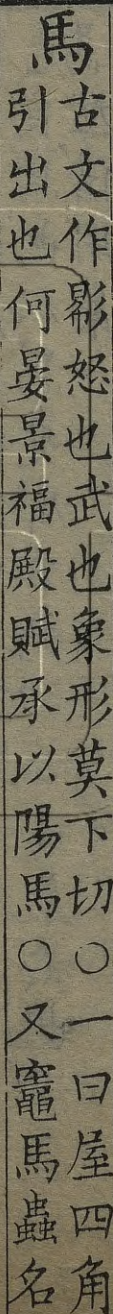 馬
古文作影怒也武也象形莫下切○一曰屋四角
引出也何晏景福殿賦承以陽馬○又竈馬蟲名